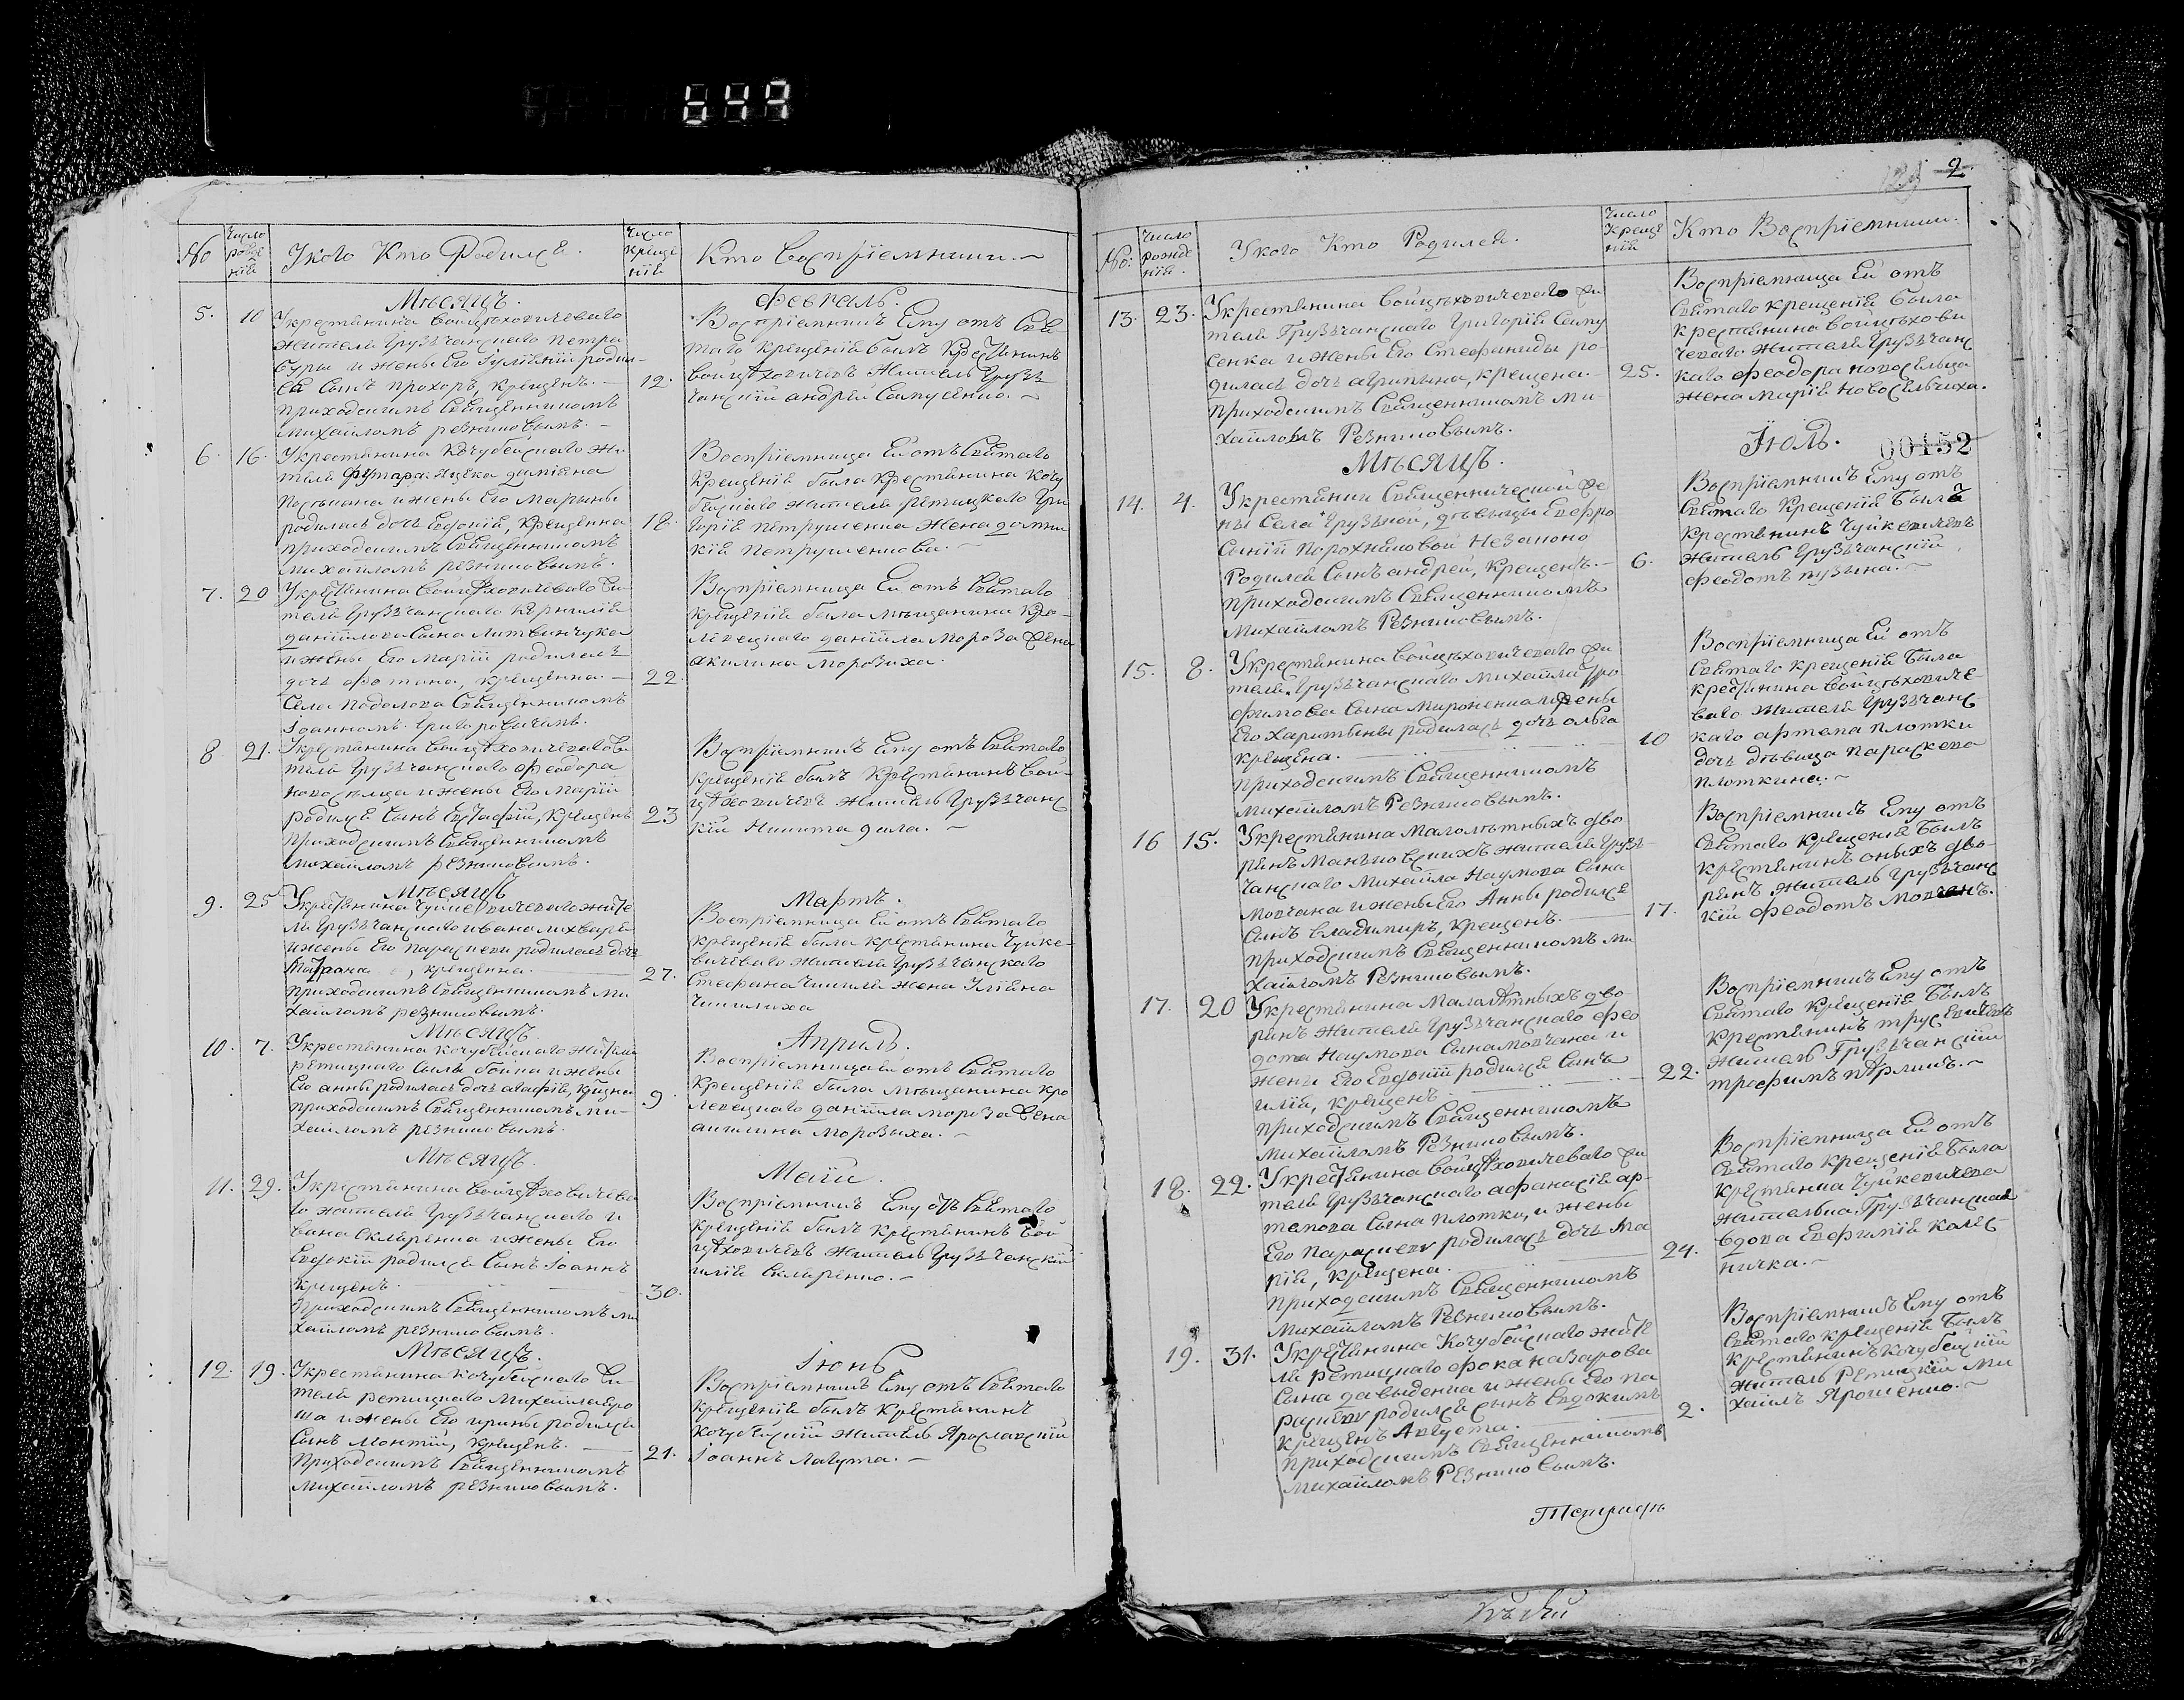 644
2
No
Число рожденія
У кого Кто Родился.
Число крещенія
Кто Воспріемники.
Мѣсяцъ.
Февраль.
5.
10
У крестянина Войцѣховичеваго
жителя Грузчанскаго Петра
Буры и жены Его Гуліянии родил-
ся Сынъ Прохоръ, крещенъ.
приходскимъ Священникомъ
Михаиломъ резниковымъ.
12.
Воспріемникъ Ему отъ Свя-
таго крещенія былъ Крестянинъ
войцѣховичевъ Житель Грузъ
чанскій андрей Самусенко.
6.
16.
У крестянина Кочубейскаго жи-
теля
родилась дочь Евдокія, крещенна
приходскимъ Священникомъ
михаиломъ резниковымъ.
18.
Воспріемница Ей отъ Святаго
крещенія была крестянина Кочу
бейскаго жителя ретицкаго Гри
горія петрушенка жена домни
кія петрушенкова.
7.
20
У крестянина Войцѣховичеваго жи-
теля Грузчанскаго Корнилія
даніилова Сына Литвинчука
и жены Его Маріи родилась
дочь фотина, крещенна.
Села Подолова Священникомъ
Іоанномъ Григоровичомъ.
22.
Воспріемница Ей отъ Святаго
крещенія была мѣщанина Кро-
левецкаго даніила мороза жена
акилина морозиха.
8
21.
У крестянина войцѣховичеваго жи
теля Грузчанскаго Феодора
новоселца и жены Его Маріи
родился Сынъ Евстафій, крещенъ
приходскимъ Священникомъ
михаиломъ резниковымъ.
23
Воспріемникъ Ему отъ Святаго
крещенія былъ Крестянинъ вой-
цѣховичевъ житель Грузчанс
кій Никита дала.
Мѣсяцъ
Мартъ.
9.
25
У крестянина Чуйкевичеваго жите
ля Грузчанскаго ивана лихваря
и жены Его Параскеви родилась дочь
Матрона, крещенна.
приходскимъ Священникомъ ми
хаиломъ резниковымъ.
27.
Воспріемница Ей отъ Святаго
крещенія была крестянина Чуйке-
вичеваго жителя Грузчанскаго
Стефана Чикиля жена Уліяна
Чикилиха
Мѣсяцъ.
Априлъ.
10.
7.
У крестянина Кочубейскаго Жителя
ретицкаго
Его анны родилась дочь агафія, крещена
приходскимъ Священникомъ ми-
хаиломъ резниковымъ.
9.
Воспріемница Ей отъ Святаго
крещенія была мѣщанина Кро
левецкаго даніила мороза жена
акилина морозыха.
Мѣсяцъ.
Маій.
11.
29.
У крестянина Войцѣховичева
го жителя Грузчанскаго и
вана Скляренка и жены Его
Евдокіи родился Сынъ Іоаннъ
крещенъ.
приходскимъ Священникомъ ми
хаиломъ резниковымъ.
30.
Воспріемникъ Ему отъ Святаго
крещенія былъ Крестянинъ вой
цѣховичевъ Житель Грузчанскій
илія Скляренко.
Мѣсяцъ.
Іюнь
12.
19.
У крестянина Кочубейскаго жи-
теля ретицкаго Михаила Яро
ша и жены Его ирины родился
Сынъ Леонтій, крещенъ.
приходскимъ Священникомъ
михаиломъ резниковымъ.
21.
Воспріемникъ Ему отъ Святаго
крещенія былъ Крестянинъ
Кочубейскій житель Ярославскій
Іоаннъ Лавута.
No:
Число рожденія.
У кого Кто Родился.
Число крещенія
Кто Воспріемники.
13.
23.
У крестянина Войцѣховичеваго жи
теля Грузчанскаго Григорія Саму
сенка и жены Его Стефаниды ро
дилась дочь агрипина, крещена.
приходскимъ Священникомъ ми-
хаиломъ Резниковымъ.
25.
Воспріемница Ей отъ
Святаго крещенія была
крестянина войцѣхови
чеваго жителя Грузчанс
каго феодора новосельца
жена Марія новосельчиха.
Мѣсяцъ.
Іюль.
00452
14.
4.
У крестянки Священнической же
ны Села Грузкой, дѣвицы Евфро
синіи Порохняковой незаконо
родился Сынъ андрей, крещенъ.
приходскимъ Священникомъ
Михаиломъ Резниковымъ.
6.
Воспріемникъ Ему отъ
Святаго крещенія былъ
крестянинъ Чуйкевичевъ
житель Грузчанскій
феодотъ пузына.
15.
8.
У крестянина Войцѣховичеваго жи
теля Грузчанскаго Михаила Тро
фимова Сына Мироненка и жены
Его Харитыны родилась дочь ольга
крещена.
приходскимъ Священникомъ
михаиломъ Резниковымъ.
10
Воспріемница Ей отъ
Святаго крещенія была
крестянина войцѣховиче
ваго жителя Грузчанс
каго артема плотки
дочь дѣвица параскева
плоткина.
16
15.
У крестянина малолѣтныхъ дво
рянъ Маньковскихъ жителя Грузъ-
чанскаго Михаила Наумова Сына
Мовчана и жены Его Анны родился
Сынъ владимиръ, крещенъ.
приходскимъ Священникомъ ми
хаиломъ Резниковымъ.
17.
Воспріемникъ Ему отъ
Святаго крещенія былъ
крестянинъ оныхъ дво-
рянъ житель Грузчанс
кій феодотъ Мовчанъ.
17.
20
У крестянина Малолѣтныхъ дво
рянъ жителя Грузчанскаго Фео
дота Наумова Сына мовчана и
жены Его Евдокіи родился Сынъ
илія, крещенъ
приходскимъ Священникомъ
Михаиломъ Резниковымъ.
22.
Воспріемникъ Ему отъ
Святаго крещенія былъ
крестянинъ
житель Грузчанскій
трофимъ
18.
22.
У крестянина Войцѣховичеваго жи
теля Грузчанскаго афанасія ар-
темова Сына плотки, и жены
Его Параскеви родилась дочь Ма
рія, крещена.
приходскимъ Священникомъ
Михаиломъ Резниковымъ.
24.
Воспріемница Ей отъ
Святаго крещенія была
крестянка Чуйкевичева
жителька Грузчанская
вдова Евфимія колес-
ничка.
19.
31.
У крестянина Кочубейскаго жите
ля Ретицкаго фока назарова
Сына давыденка и жены Его па
раскеви родился сынъ Евдокимъ
крещенъ Августа.
приходскимъ Священникомъ
михаиломъ Резниковымъ.
2.
Воспріемникъ Ему отъ
Святаго крещенія былъ
крестянинъ кочубейскій
житель Ретицкій Ми
хаилъ Ярошенко.